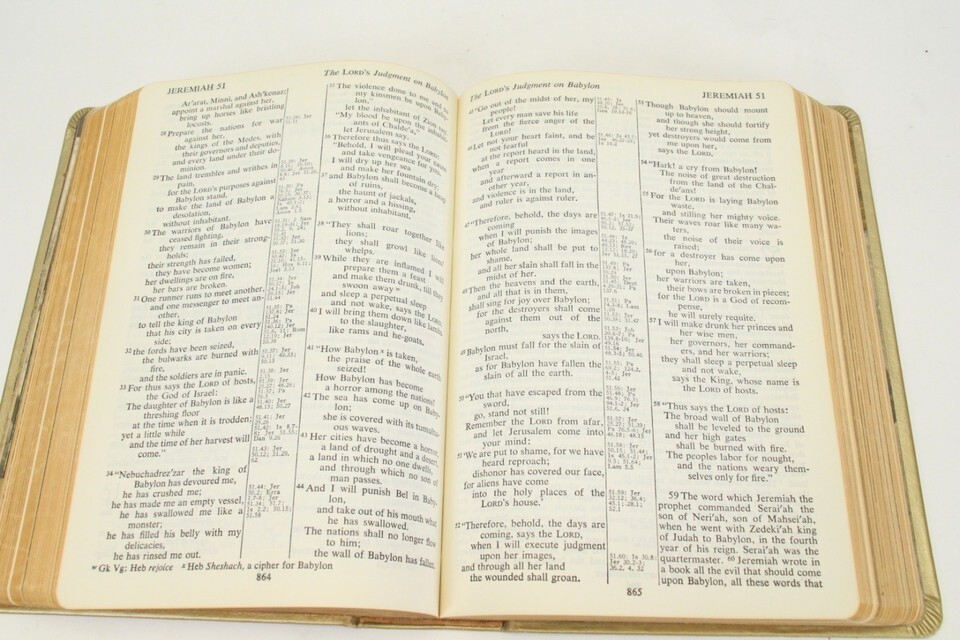 JEREMIAH 51
The LORD's Judgment on Babylon
Ar'arat, Minni, and Ash'kenaz;
appoint a marshal against her,
bring up horses like bristling
locusts.
28 Prepare the nations for war
against her,
the kings of the Medes, with
their governors and deputies,
and every land under their do-
minion.
29 The land trembles and writhes in
pain,
for the LORD's purposes against
Babylon stand,
to make the land of Babylon a
desolation,
without inhabitant.
30 The warriors of Babylon have
ceased fighting,
they remain in their strong-
holds;
their strength has failed,
they have become women;
her dwellings are on fire,
her bars are broken.
31 One runner runs to meet another,
and one messenger to meet an-
other,
to tell the king of Babylon
that his city is taken on every
side;
32 the fords have been seized,
the bulwarks are burned with
fire,
and the soldiers are in panic.
33 For thus says the LORD of hosts,
the God of Israel:
The daughter of Babylon is like a
threshing floor
at the time when it is trodden;
yet a little while
and the time of her harvest will
come."
34 "Nebuchadrez'zar the king of
Babylon has devoured me,
he has crushed me;
he has made me an empty vessel,
he has swallowed me like a
monster;
he has filled his belly with my
delicacies,
he has rinsed me out.
35 The violence done to me and to
my kinsmen be upon Baby-
lon,"
let the inhabitant of Zion say.
"My blood be upon the inhabit-
ants of Chalde'a,"
let Jerusalem say.
36 Therefore thus says the LORD:
"Behold, I will plead your cause
and take vengeance for you.
I will dry up her sea
and make her fountain dry;
37 and Babylon shall become a heap
of ruins,
the haunt of jackals,
a horror and a hissing,
without inhabitant.
38 "They shall roar together like
lions;
they shall growl like lions'
whelps.
39 While they are inflamed I will
prepare them a feast
and make them drunk, till they
swoon away w
and sleep a perpetual sleep
and not wake, says the LORD.
40 I will bring them down like lambs
to the slaughter,
like rams and he-goats.
41 "How Babylon x is taken,
the praise of the whole earth
seized!
How Babylon has become
a horror among the nations!
42 The sea has come up on Baby-
lon;
she is covered with its tumultu-
ous waves.
43 Her cities have become a horror,
a land of drought and a desert,
a land in which no one dwells,
and through which no son of
man passes.
44 And I will punish Bel in Baby-
lon,
and take out of his mouth what
he has swallowed.
The nations shall no longer flow
to him;
the wall of Babylon has fallen.
w Gk Vg: Heb rejoice x Heb Sheshach, a cipher for Babylon
864
The LORD's Judgment on Babylon
JEREMIAH 51
45 "Go out of the midst of her, my
people!
Let every man save his life
from the fierce anger of the
LORD!
46 Let not your heart faint, and be
not fearful
at the report heard in the land,
when a report comes in one
year
and afterward a report in an-
other year,
and violence is in the land,
and ruler is against ruler.
47 "Therefore, behold, the days are
coming
when I will punish the images
of Babylon;
her whole land shall be put to
shame,
and all her slain shall fall in the
midst of her.
48 Then the heavens and the earth,
and all that is in them,
shall sing for joy over Babylon;
for the destroyers shall come
against them out of the
north,
says the LORD.
49 Babylon must fall for the slain of
Israel,
as for Babylon have fallen the
slain of all the earth.
50 "You that have escaped from the
sword,
go, stand not still!
Remember the LORD from afar,
and let Jerusalem come into
your mind:
51 'We are put to shame, for we have
heard reproach;
dishonor has covered our face,
for aliens have come
into the holy places of the
LORD's house.'
52 "Therefore, behold, the days are
coming, says the LORD,
when I will execute judgment
upon her images,
and through all her land
the wounded shall groan.
53 Though Babylon should mount
up to heaven,
and though she should fortify
her strong height,
yet destroyers would come from
me upon her,
says the LORD.
54 "Hark! a cry from Babylon!
The noise of great destruction
from the land of the Chal-
de'ans!
55 For the LORD is laying Babylon
waste,
and stilling her mighty voice.
Their waves roar like many wa-
ters,
the noise of their voice is
raised;
56 for a destroyer has come upon
her,
upon Babylon;
her warriors are taken,
their bows are broken in pieces;
for the LORD is a God of recom-
pense,
he will surely requite.
57 I will make drunk her princes and
her wise men,
her governors, her command-
ers, and her warriors;
they shall sleep a perpetual sleep
and not wake,
says the King, whose name is
the LORD of hosts.
58 "Thus says the LORD of hosts:
The broad wall of Babylon
shall be leveled to the ground
and her high gates
shall be burned with fire.
The peoples labor for nought,
and the nations weary them-
selves only for fire."
59 The word which Jeremiah the
prophet commanded Serai'ah the
son of Neri'ah, son of Mahsei'ah,
when he went with Zedeki'ah king
of Judah to Babylon, in the fourth
year of his reign. Serai'ah was the
quartermaster. 60 Jeremiah wrote in
a book all the evil that should come
upon Babylon, all these words that
865